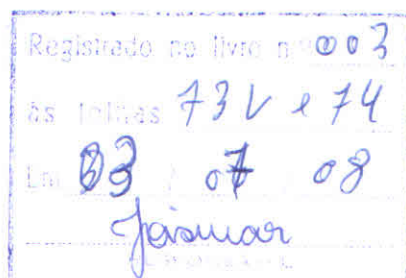 Registrado no livro nº 003
às folhas 73V e 74
Em 03 / 07 / 08
Jasmar